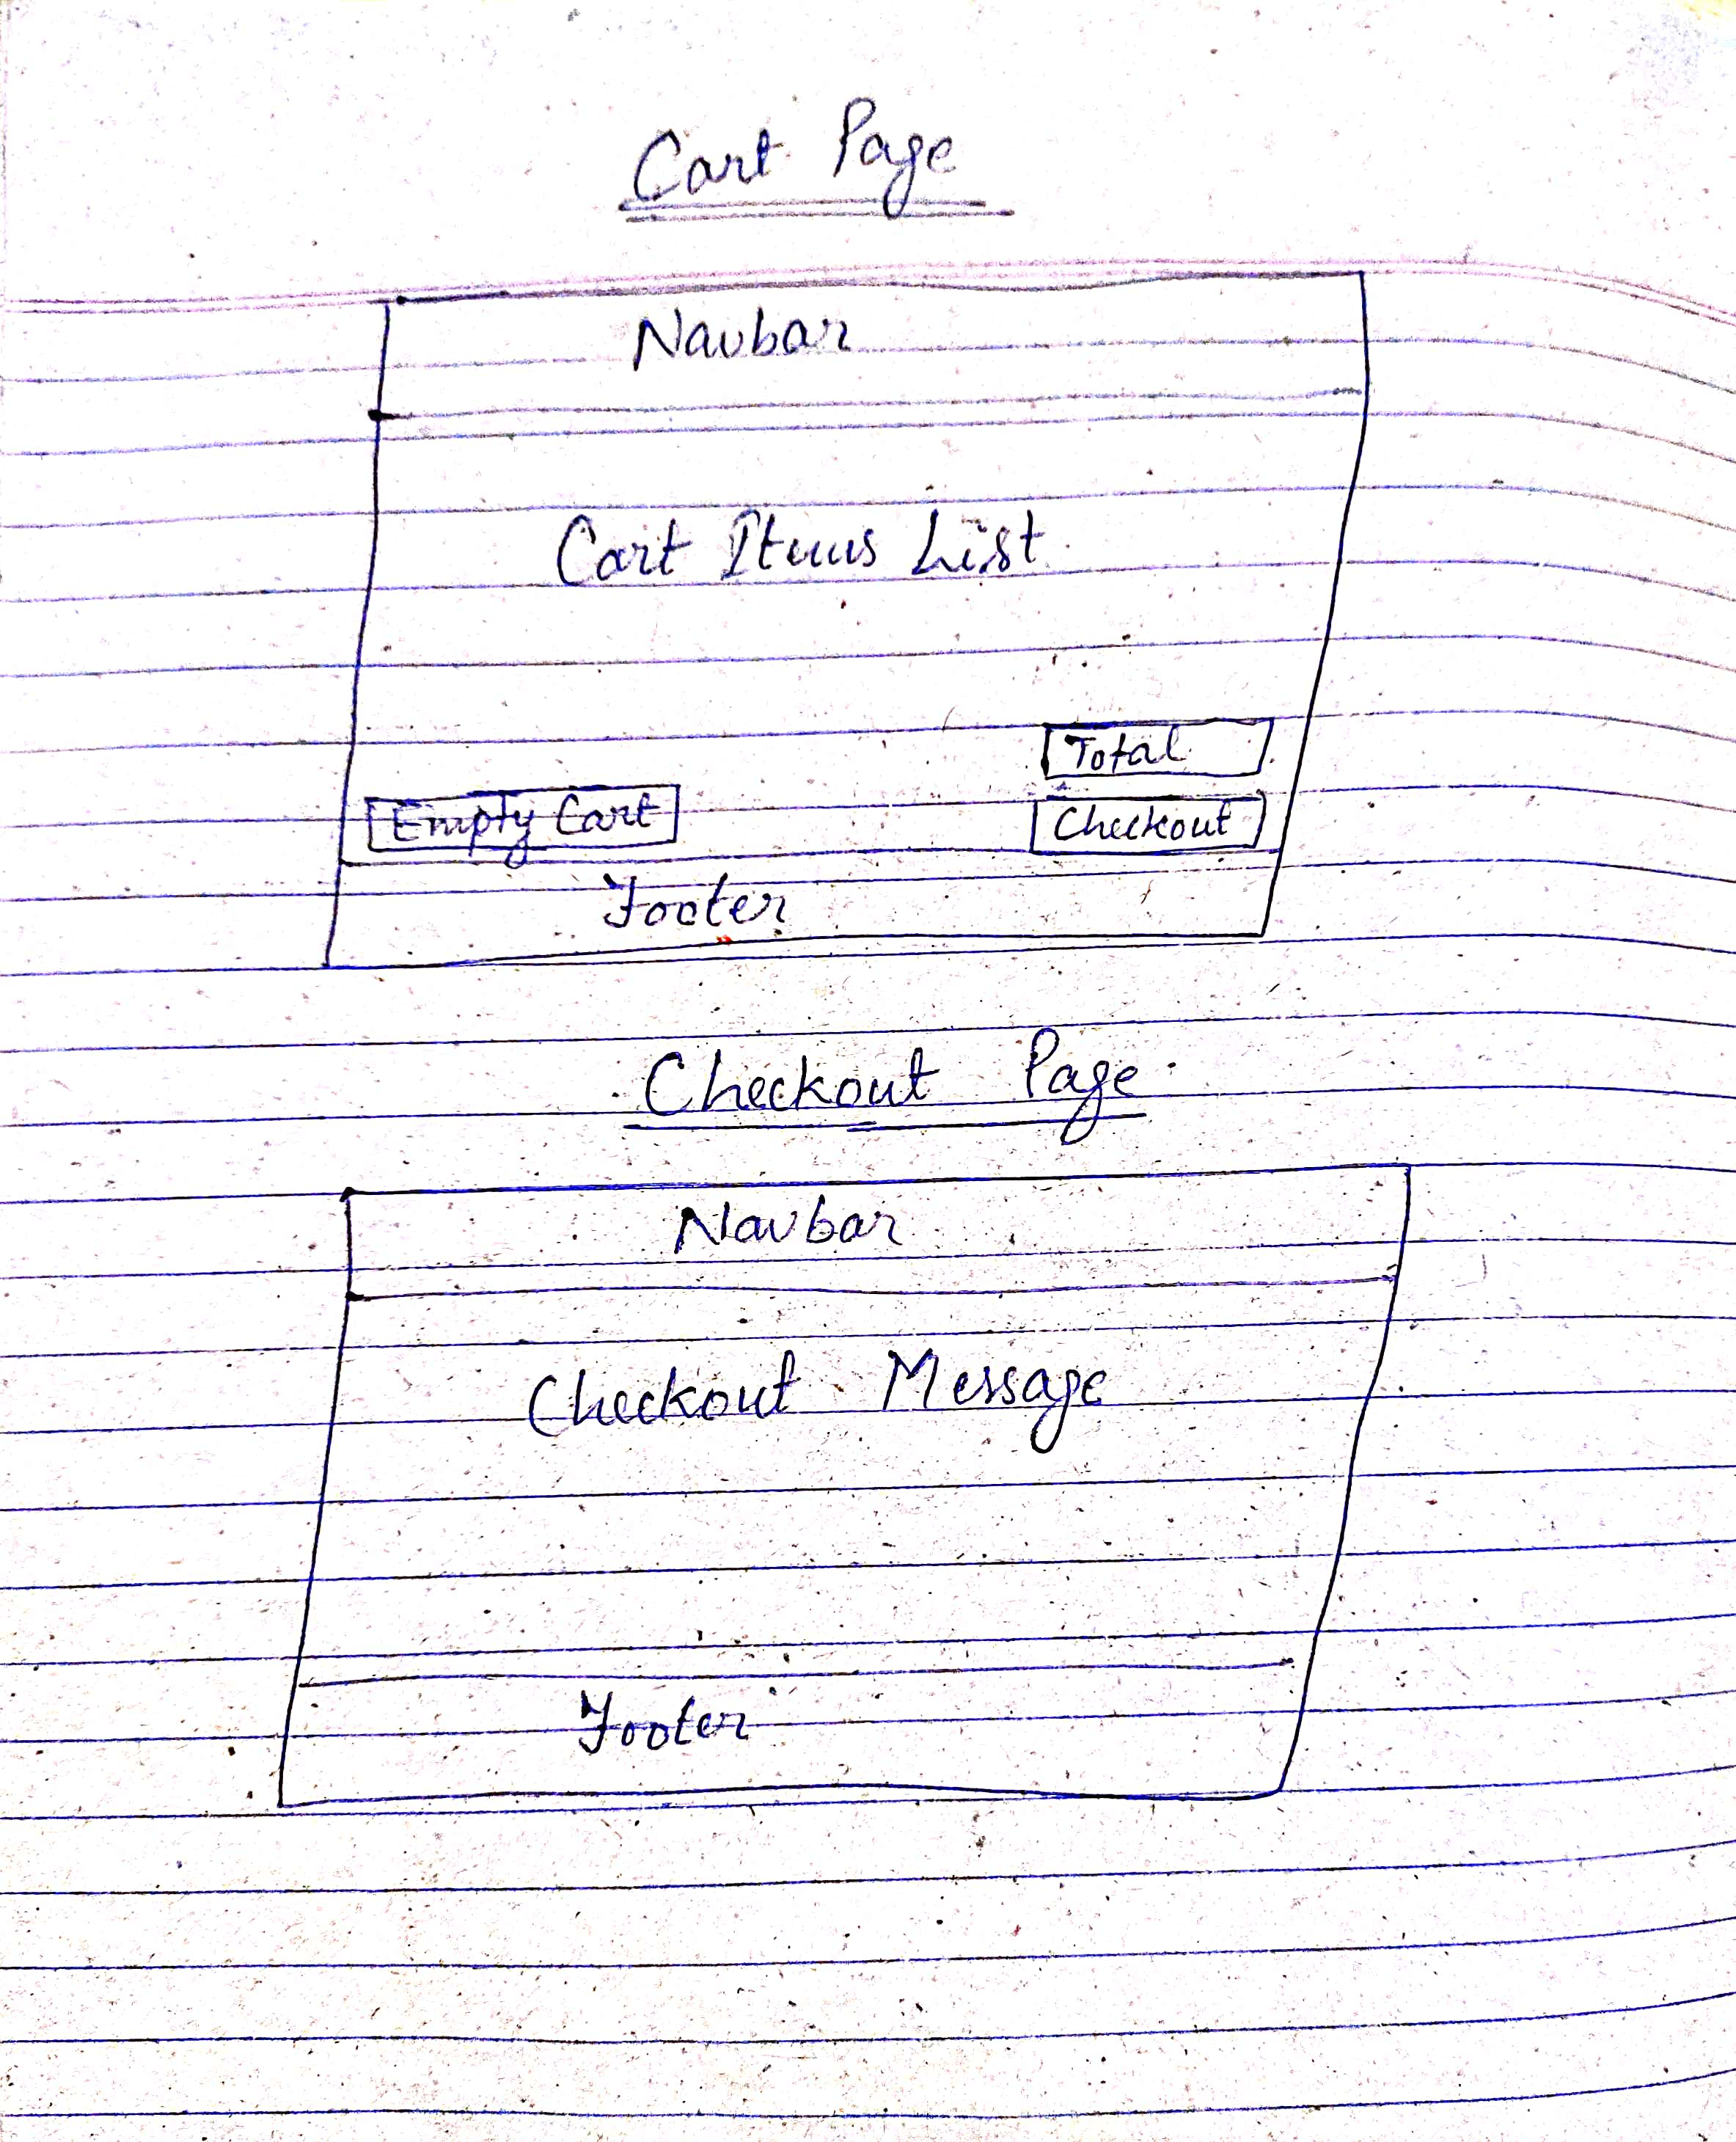 Cart Page
Navbar
Cart Items List
Total
Empty Cart
Checkout
Footer
Checkout Page
Navbar
Checkout Message
Footer